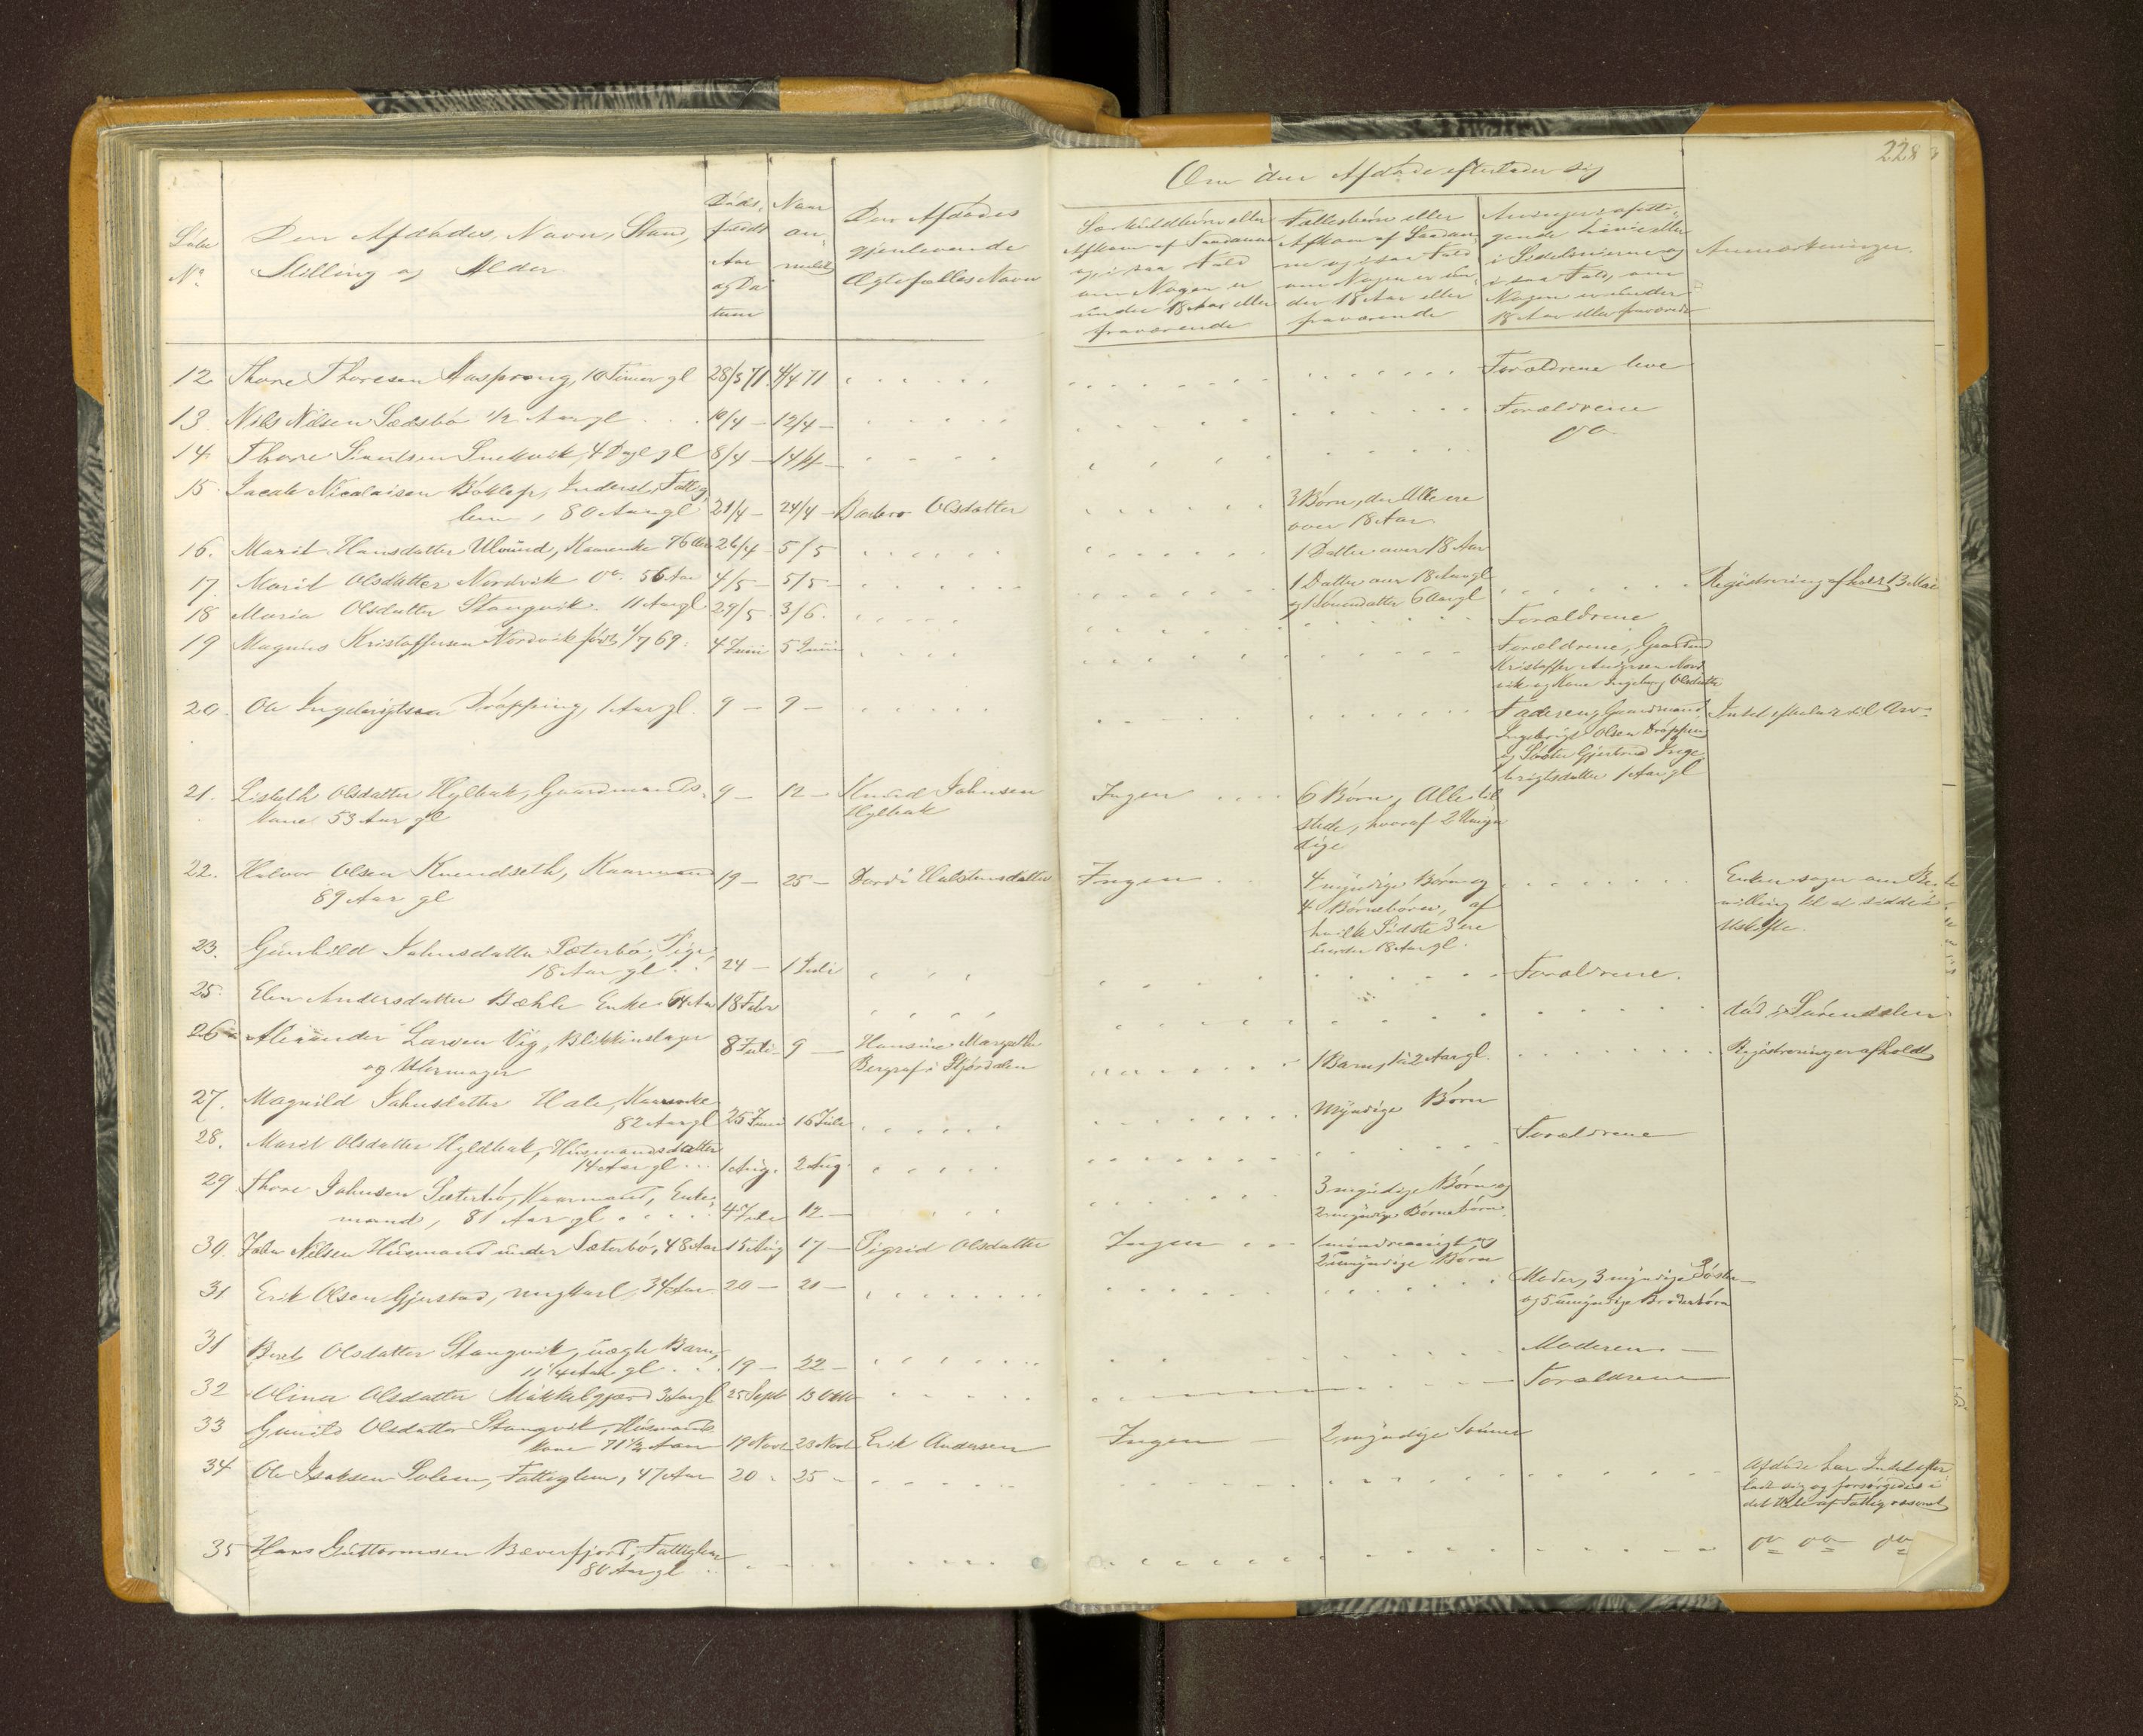 228
Om den Afdøde efterlader sig
Løbe
No
Den Afdødes, Navn, Stand,
Stilling og Alder
Døds,
fældt
Aar
og Da
tum
Naar
an,
meldt
Den Afdødes
gjenlevende
Ægtefælles Navn
Særkuldbørn eller
Afkom af Saadanne
og, i saa Fald
om Nogen er
under 18 Aar eller
fraværende
Fællesbørn eller
Afkom af Saadan,
ne og i saa Fald
om Nogen er un,
der 18 Aar eller
fraværende
Arvinger i opsti,
gende Linie eller
i Sidelinierne og
i saa Fald, om
Nogen er under
18 Aar eller fraværende
Anmærkninger.
12 Thore Thoresen Aasprong, 10 Timer gl 28/3 71. 4/4 71 Forældrene leve
13 Nils Nilsen Sædsbø 1/2 Aar gl 10/4 - 12/4 - Forældrene
14 Thore Sivertsen 4 Dage gl 8/4 - 14/4 - do
15. Jacob Nicolaisen Bøklep, Inderst, Fattig
lem, 80 Aar gl 21/4 - 24/4 - Barbro Olsdatter 3 Børn, der Alle ere
over 18 Aar.
16. Marit Hansdatter Ulvund, Kaarenke 76 Aar 26/4 - 5/5 1 Datter over 18 Aar
17. Marit Olsdatter Nordvik do. 56 Aar 4/5 - 5/5 - 1 Datter over 18 Aar gl Registrering afholdt 13 Mai
og 1 Sønnedatter 6 Aar gl
18 Maria Olsdatter Stangvik. 11 Aar gl 29/5. 3/6. Forældrene
19 Magnus Kristoffersen Nordvik født 1/7 69. 4 Juni 5 Juni Forældrene, Gaardmd
Kristoffer Andersen Nord
vik og Kone Ingeborg Olsdatter
20. Ole Ingebrigtsen Drøpping, 1 Aar gl. 9 - 9 - Faderen, Gaardmand Intet efterladt til Arv.
Ingebrigt Olsen Drøpping
og Søster Gjertrud Inge
brigtsdatter 1 Aar gl
21. Lisbeth Olsdatter Hylbak, Gaardmands,
kone 53 Aar gl 9 - 12 - Knud Johnsen
Hylbak Ingen 6 Børn, Alle til
stede, hvoraf 2 Umyn
dige
22. Halvor Olsen Kvendseth, Kaarmand
89 Aar gl 19 - 25 - Dordi Halstensdatter Ingen 4 myndige Børn og
4 Børnebørn, af
hvilke Sidste 3 ere
under 18 Aar gl. Enken søger om Be
villing til at sidde i
Uskifte.
23. Gunhild Johnsdatter Sæterbø, Pige,
18 Aar gl 24 - 1 Juli Forældrene.
25. Elen Andersdatter Bæhle Enke 64 Aar 18 Febr død i Surendalen
26 Alexander Larsen Vig, Blikkinslager
og Uhrmager 8 Juli 9 - Hansine Margrethe
Bergraf i Stjørdalen 1 Barn, 1 à 2 Aar gl. Registreringen afholdt
27. Magnild Johnsdatter Hale, Kaarenke
82 Aar gl 25 Juni 16 Juli Myndige Børn
28. Marit Olsdatter Hyldbak, Husmandsdatter
14 Aar gl 1 Aug. 2 Aug. Forældrene
29 Thore Johnsen Sæterbø, Kaarmand, Enke,
mand, 81 Aar gl 4 Juli 12 - 3 myndige Børn og
2 myndige Børnebørn.
30. John Nilsen Husmand under Sæterbø, 48 Aar 15 Aug 17 - Sigrid Olsdatter Ingen 1 mindreaarigt og
2 umyndige Børn
31 Erik Olsen Gjerstad, ungkarl, 34 Aar 20 - 21 - Moder, 3 myndige Søstre
og 5 umyndige Broderbørn
31 Beret Olsdatter Stangvik, uægte Barn,
11 1/4 Aar gl 19 - 22 - Moderen. -
32 Olina Olsdatter Mikkelgjærd 3 Aar gl 25 Septb 13 Oktb Forældrene
33 Gunild Olsdatter Stangvik, Husmands
kone 71 1/2 Aar 19 Novb 23 Novb Erik Andersen Ingen - 2 myndige Sønner
34 Ole Isaksen Solem, Fattiglem, 47 Aar 20 " 25 " Afdøde har Intet efter
ladt sig og forsørgedes i
det Hele af Fattigvæsenet
35 Hans Guttormsen Bæverfjord, Fattiglem
80 Aar gl do do do